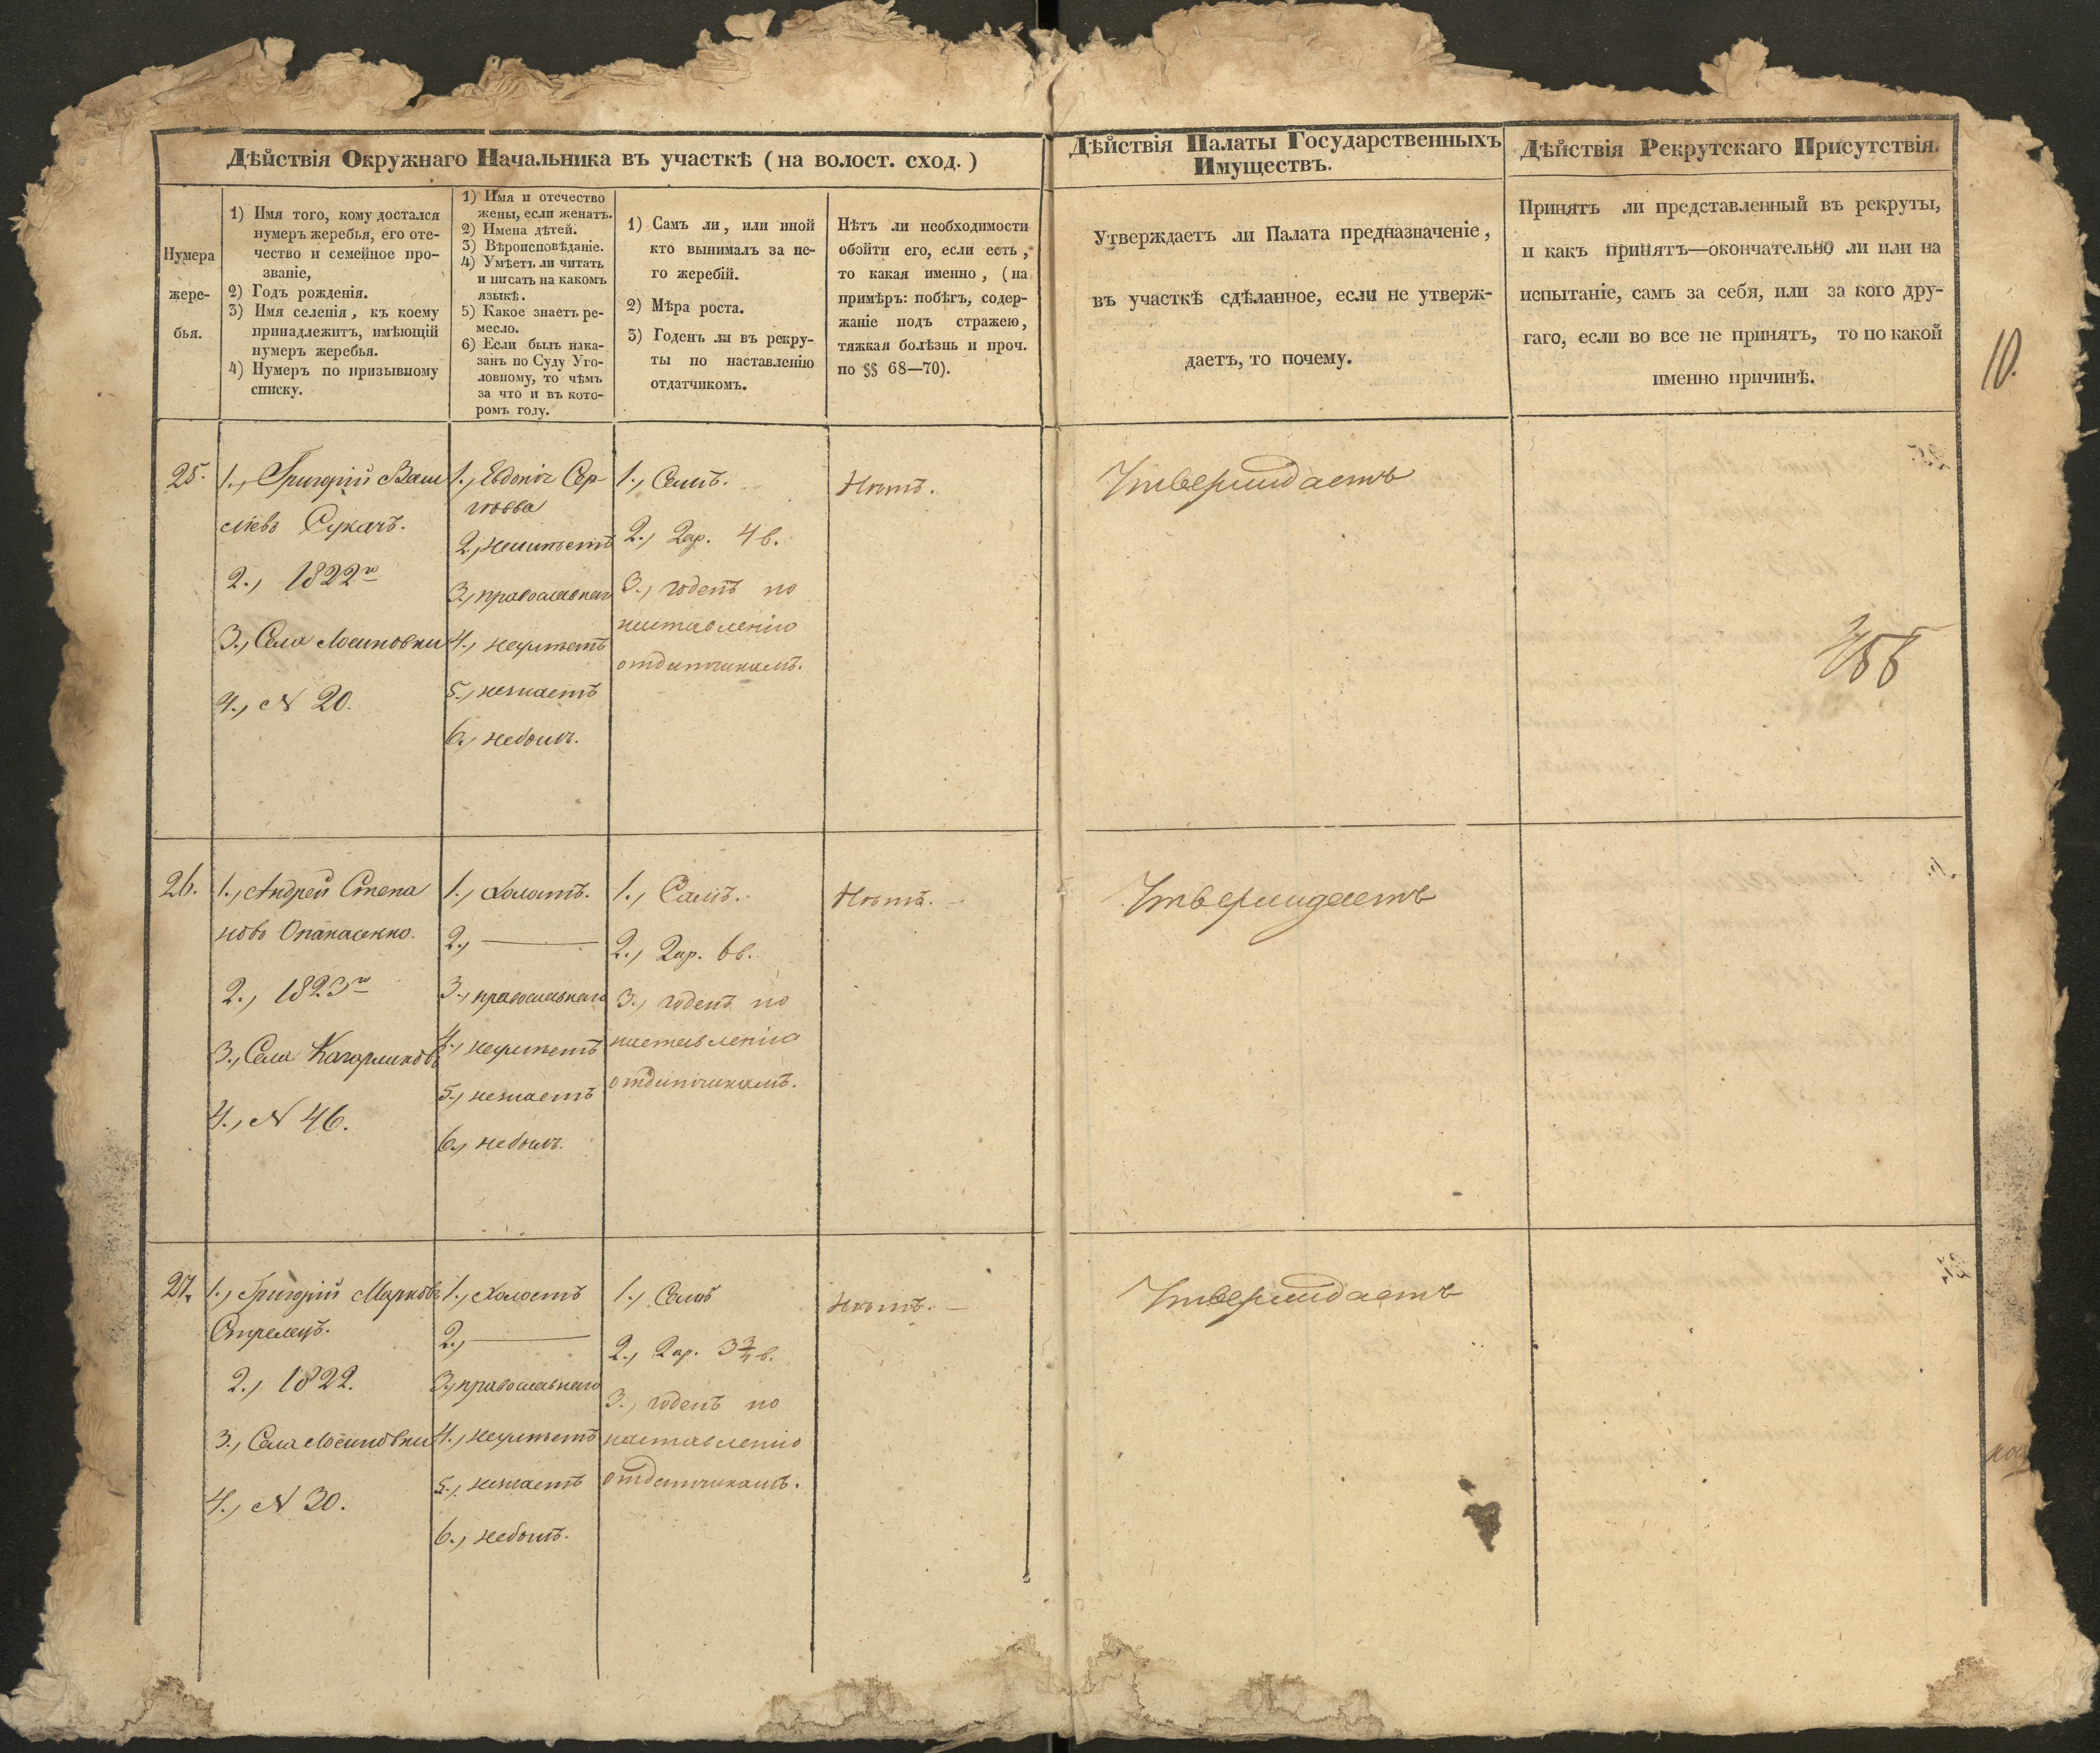 Дѣйствія Окружнаго Начальника въ участкѣ (на волост. сход.)
Нумера
жере-
бья.
1) Имя того, кому достался
нумеръ жеребья, его оте-
чество и семейное про-
званіе,
2) Годъ рожденія.
3) Имя селенія, къ коему
принадлежитъ, имѣющій
нумеръ жеребья.
4) Нумеръ по призывному
списку.
1) Имя и отечество
жены, если женатъ.
2) Имена дѣтей.
3) Вѣроисповѣданіе.
4) Умѣетъ ли читать
и писать на какомъ
языкѣ.
5) Какое знаетъ ре-
месло.
6) Если былъ нака-
занъ по Суду Уго-
ловному, то чѣмъ
за что и въ кото-
ромъ году.
1) Самъ ли, или иной
кто вынималъ за не-
го жеребій.
2) Мѣра роста.
3) Годенъ ли въ рекру-
ты по наставленію
отдатчикомъ.
Нѣтъ ли необходимости
обойти его, если есть,
то какая именно, (на
примѣръ: побѣгъ, содер-
жаніе подъ стражею,
тяжкая болѣзнь и проч.
по §§ 68—70).
Дѣйствія Палаты Государственныхъ
Имуществъ.
Утверждаетъ ли Палата предназначеніе,
въ участкѣ сдѣланное, если не утверж-
даетъ, то почему.
Дѣйствія Рекрутскаго Присутствія.
Принятъ ли представленный въ рекруты,
и какъ принятъ—окончательно ли или на
испытаніе, самъ за себя, или за кого дру-
гаго, если во все не принятъ, то по какой
именно причинѣ.
10.
25.
1., Григорій Васи
ліевъ Сукачъ.
2., 1822го
3., Села Лосиновки
4., N 20.
1., Евдокія Сер
гѣева
2., неимѣетъ
3., православнаго
4., неумѣетъ
5., незнаетъ
6., небылъ.
1., Самъ.
2., 2ар. 4 в.
3., годенъ по
наставленію
отдатчикамъ.
Нѣтъ.
Утверждаетъ
26.
1., Андрей Степа
новъ Опанасенко.
2., 1823го
3., Села
4., N 46.
1., Холостъ.
2., —
3., православнаго
4., неумѣетъ
5., незнаетъ
6., небылъ.
1., Самъ.
2., 2ар. 6 в.
3., годенъ по
наставленію
отдатчикамъ.
Нѣтъ. —
Утверждаетъ
27.
1., Григорій Марковъ
Стрелецъ.
2., 1822.
3., Села Лосиновки
4., N 30.
1., Холостъ
2., —
3., православнаго
4., неумѣетъ
5., незнаетъ
6., небылъ.
1., Самъ
2., 2ар. 3 3/4 в.
3., годенъ по
наставленію
отдатчикамъ.
Нѣтъ. —
Утверждаетъ